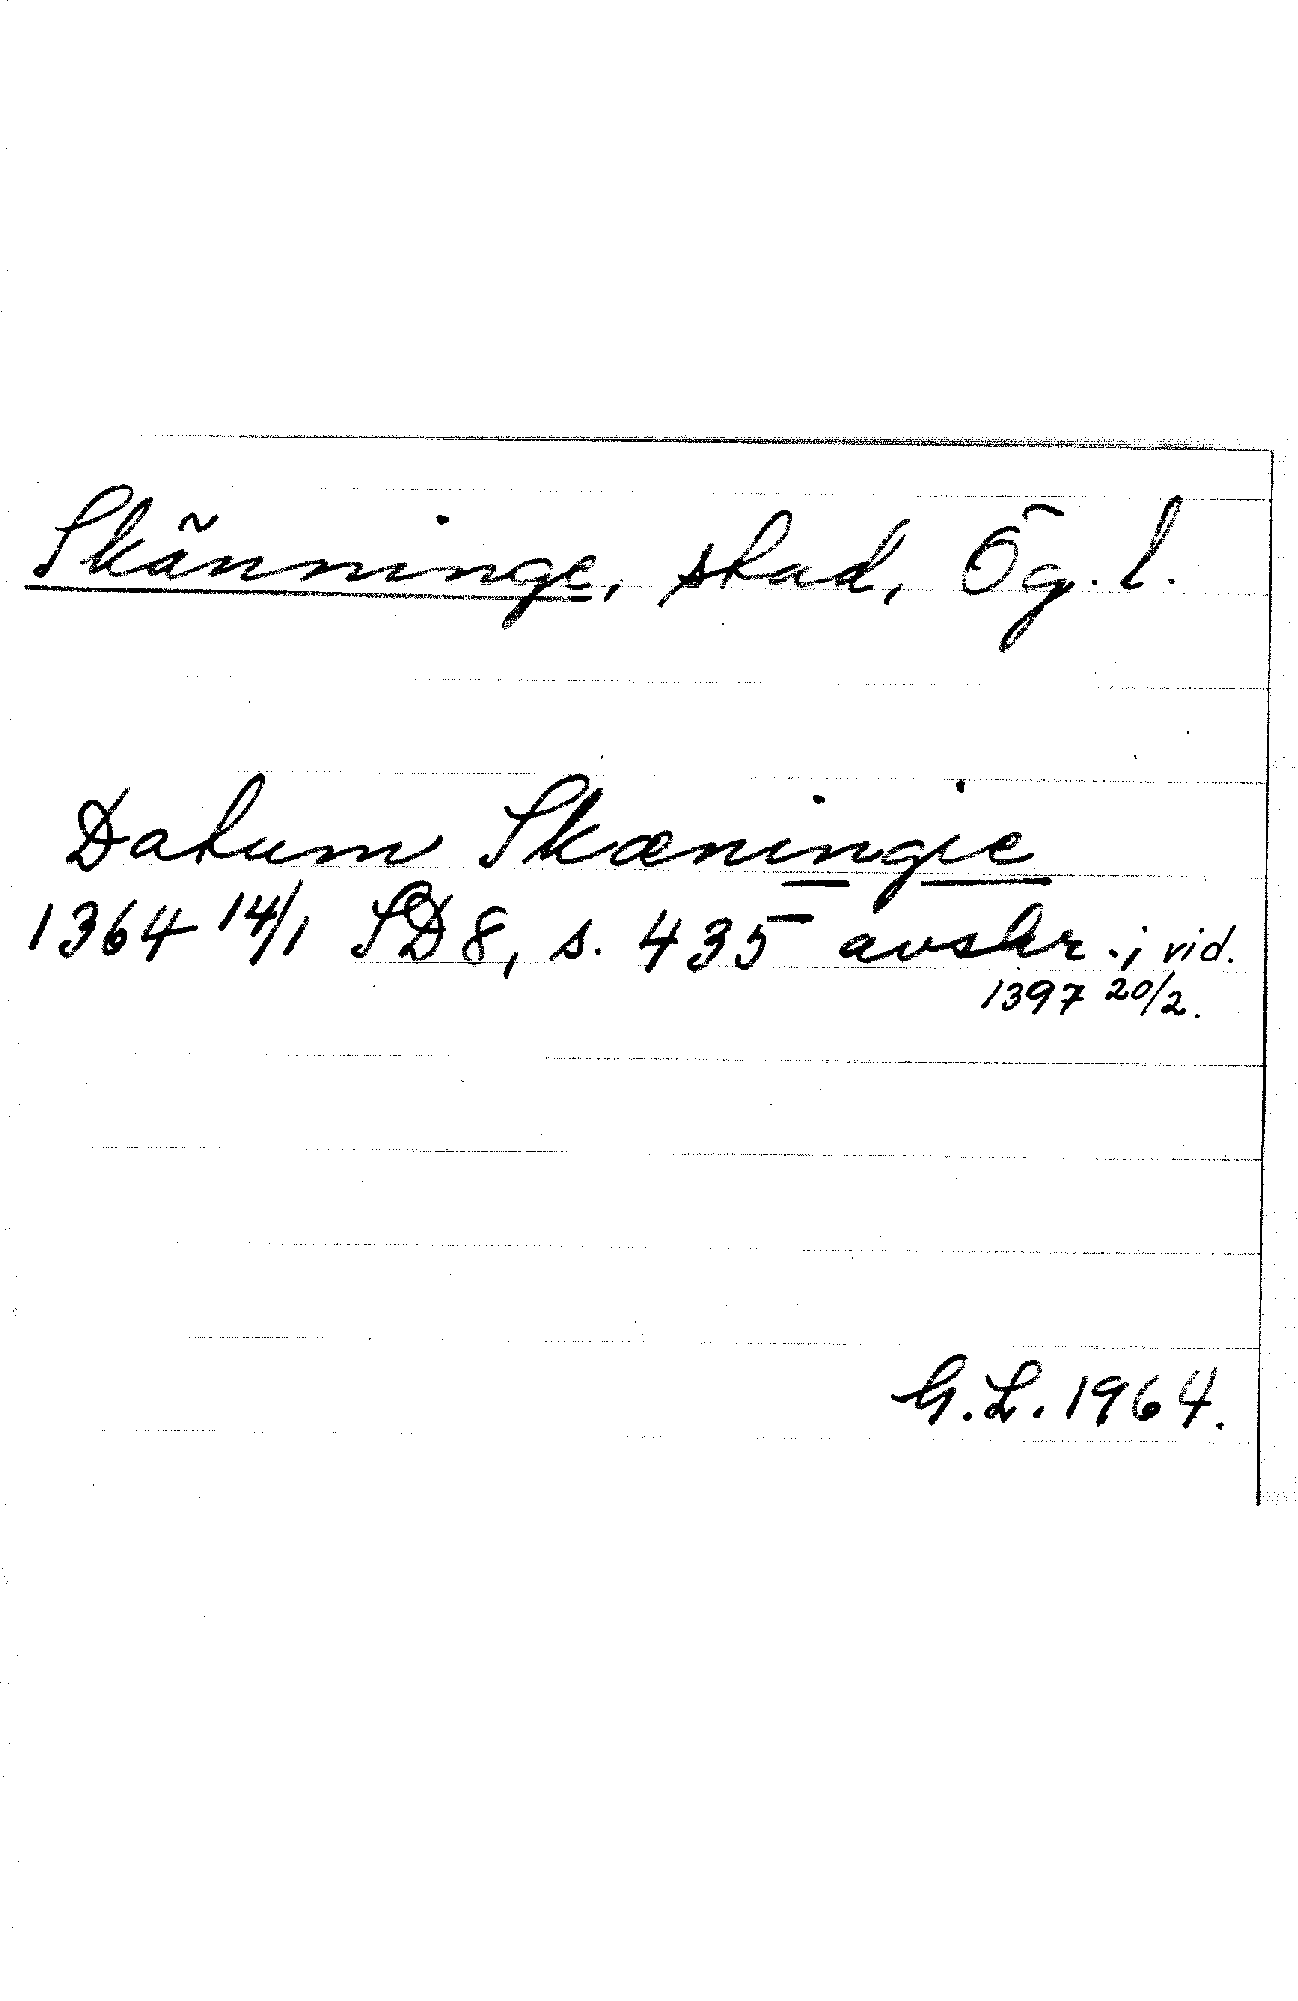 Skänninge, stad, Ög. l.
Datum Skæningie
1364 14/1 SD 8, s. 435 avskr. i vid.
1397 20/2.
G.L. 1964.